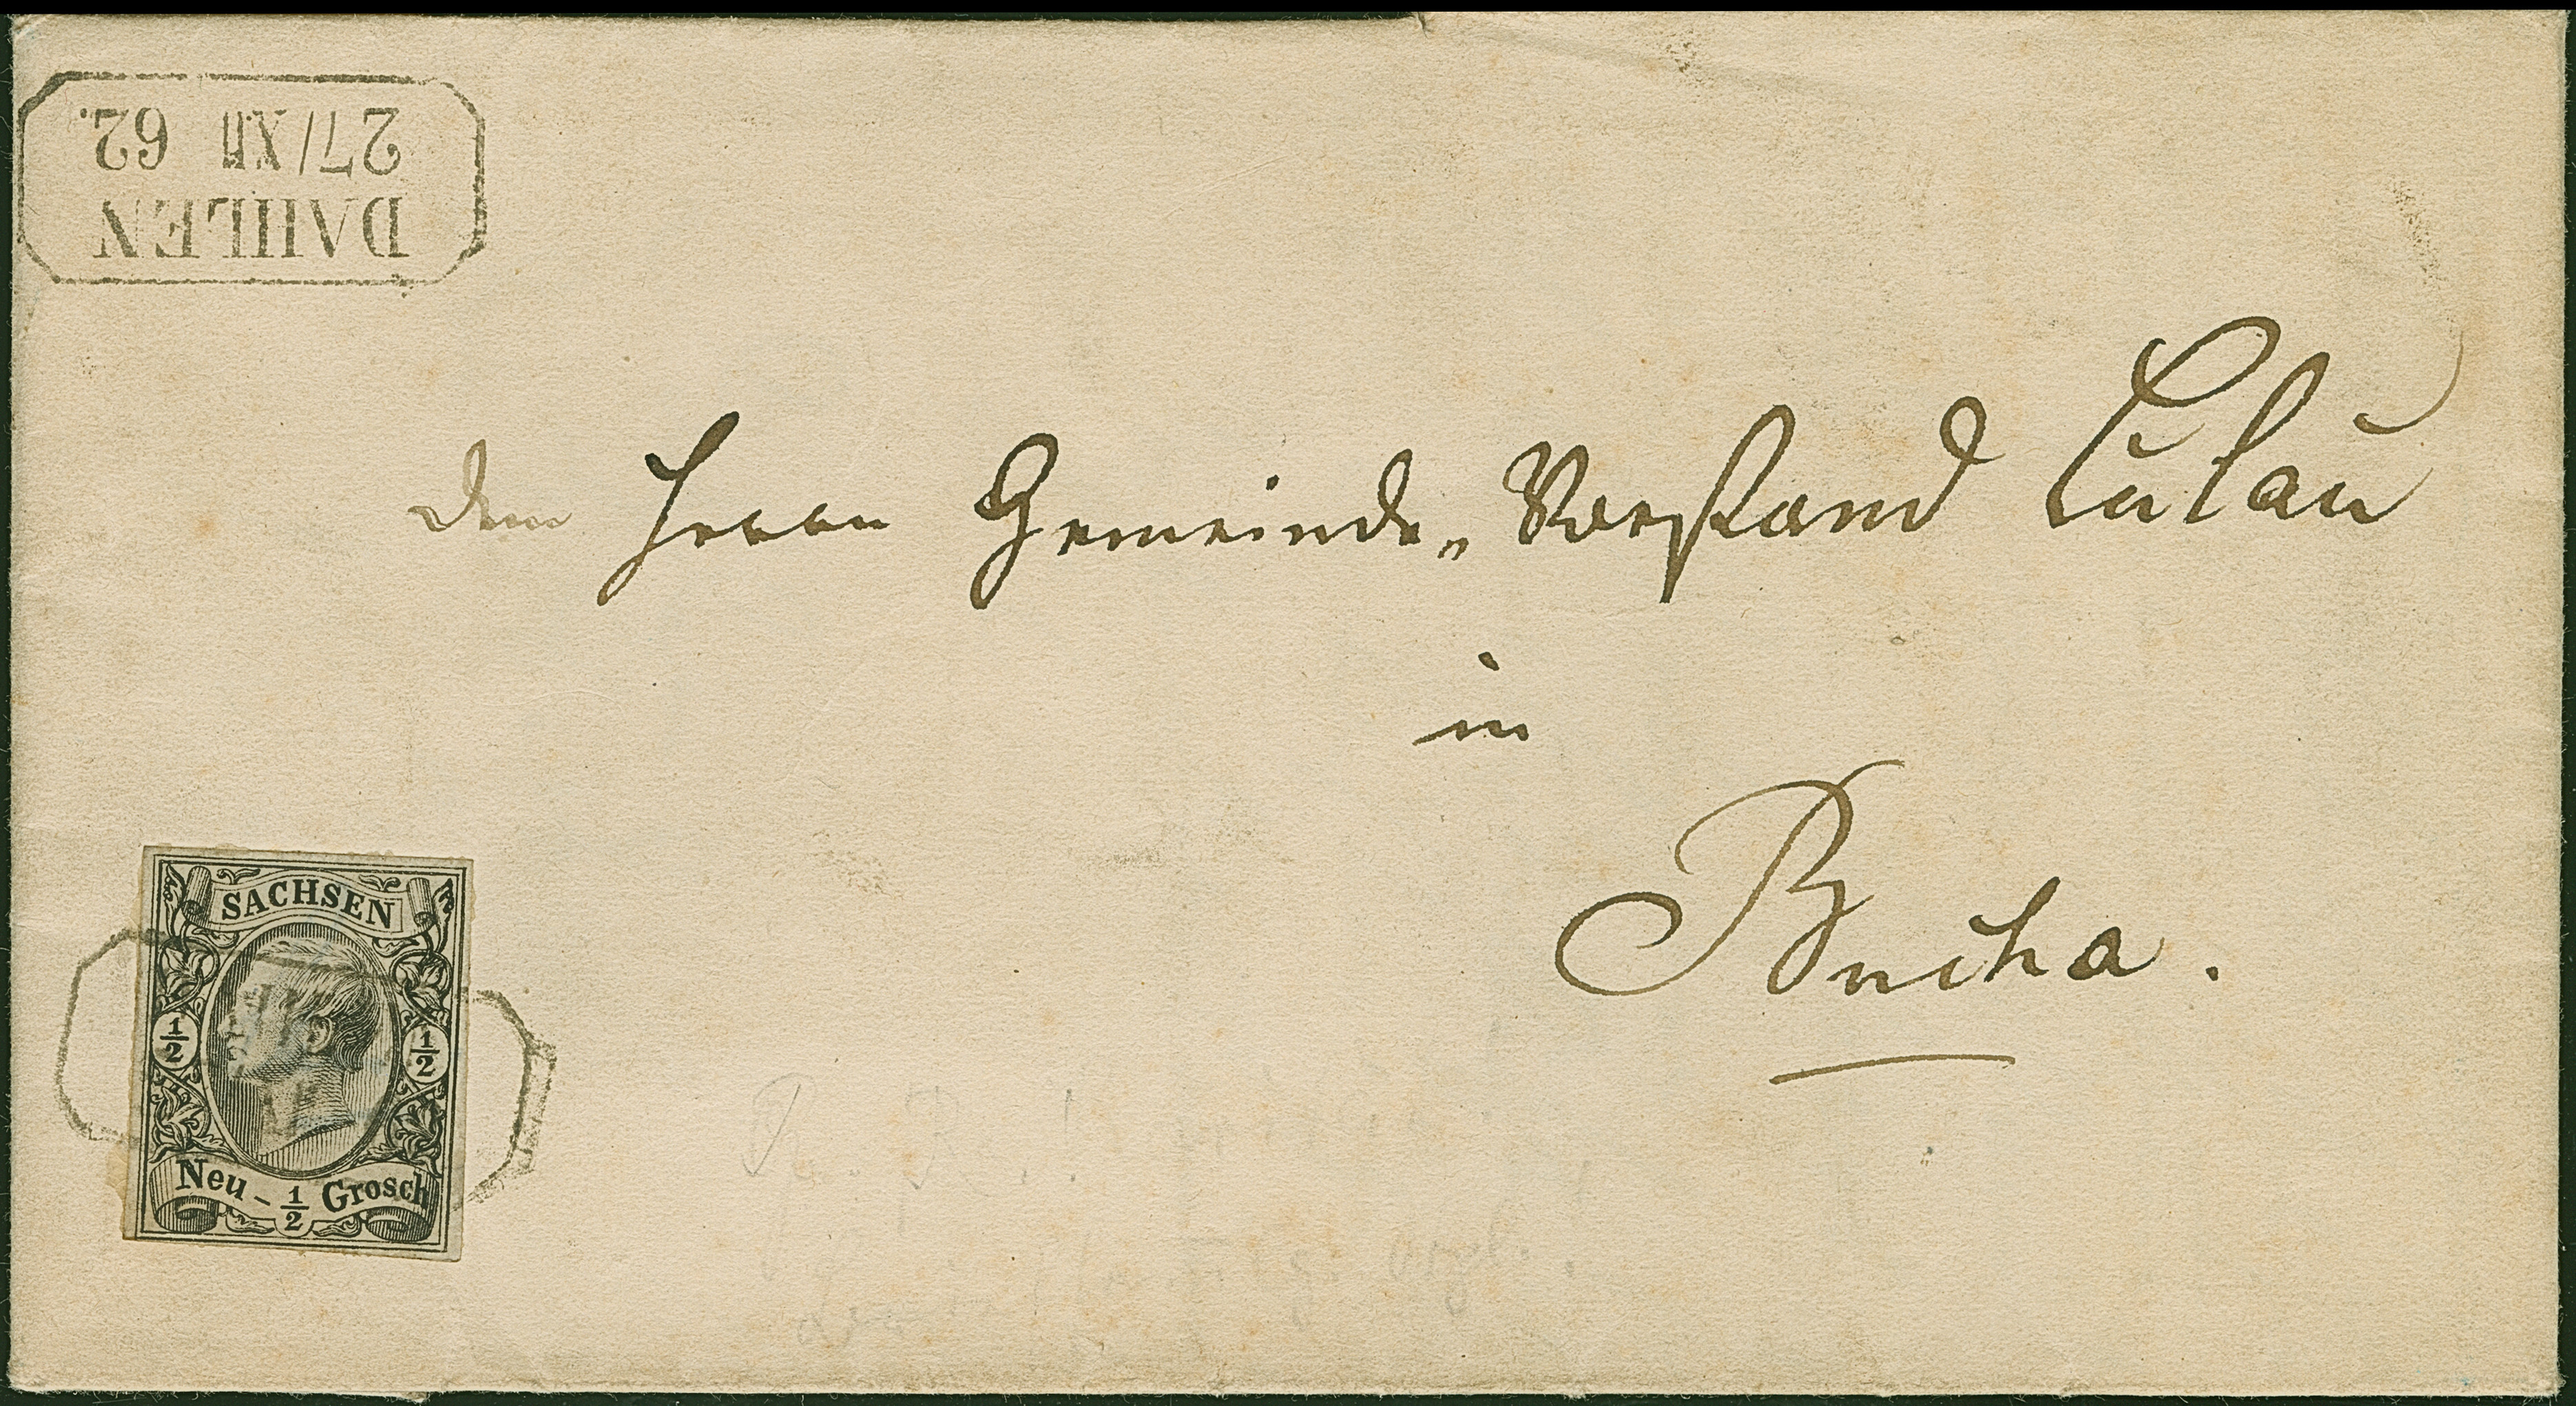 DAHLEN
27/XII 62.
Dem Herrn Gemeinde„Vorstand
in
Bucha.
SACHSEN
1/2 1/2
Neu-1/2 Grosch